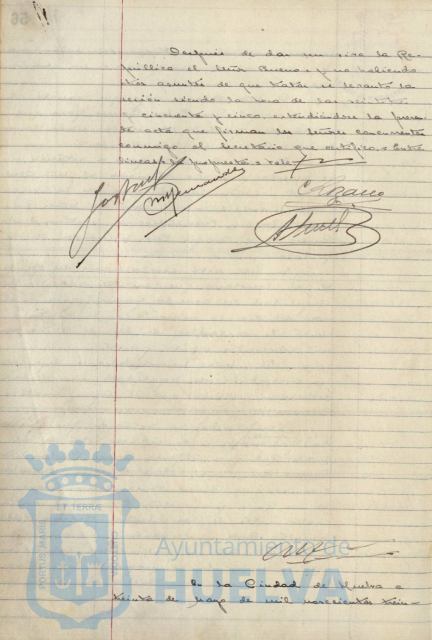 Después de dar un viva la Re-
pública el Señor Bueno y no habiendo
más asuntos de que tratar se levantó la
sesión siendo la hora de las veintidós
y cincuenta y cinco, extendiéndose la presen-
te acta que firman los señores concurrentes
conmigo el Secretario que certifico. Entre
lineas: la propuesta = vale
Lozano
Ayuntamiento de
HUELVA
PORTUS MARIS
ET TERRÆ
CUSTODIA
En la Ciudad de Huelva a
treinta de Mayo de mil novecientos trein-